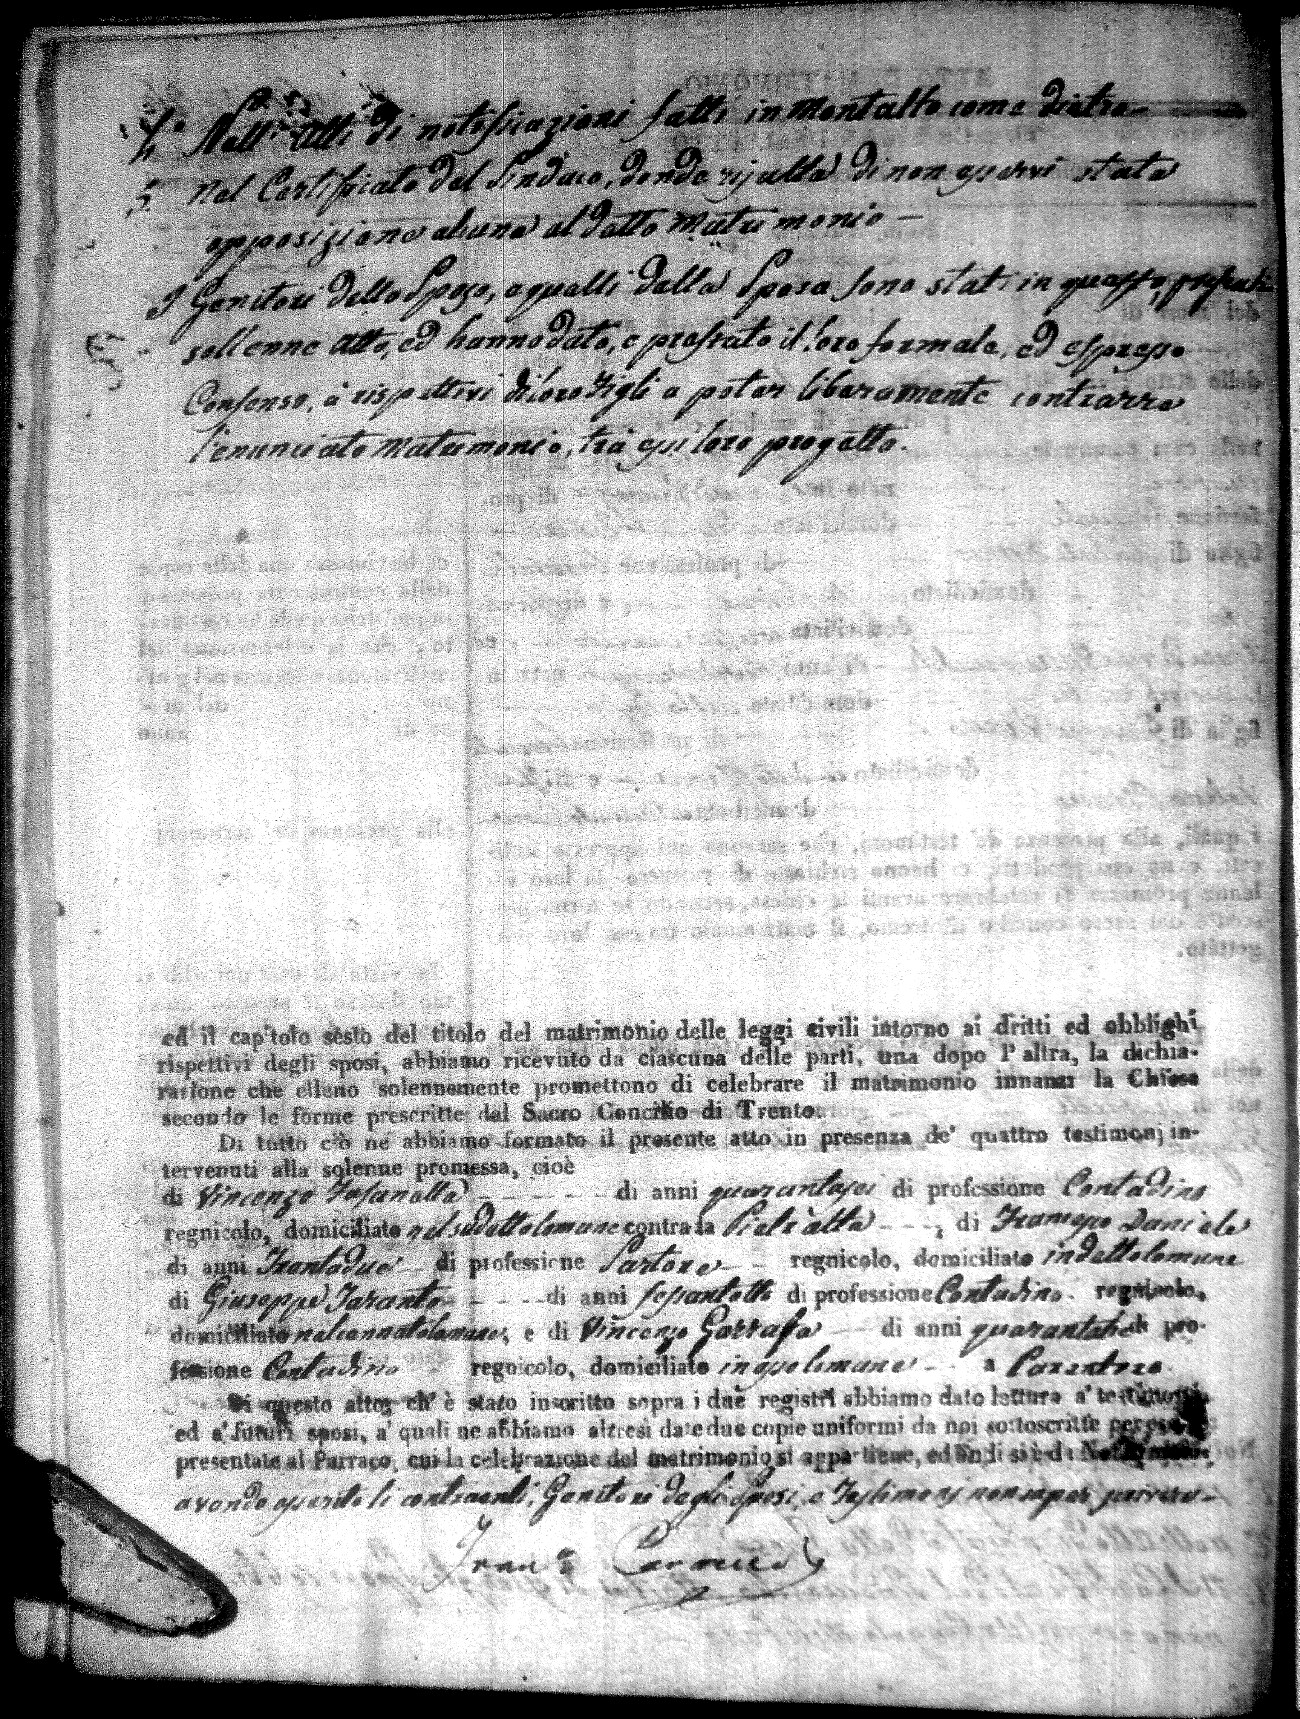 4.° Nell' atti di notificazioni fatti in Montalto come dietro
5.° Nel Certificato del Sindaco, donde risulta di non esservi stata
opposizione alcuna al detto Matrimonio —
I Genitori dello Sposo, e quelli della Sposa sono stati in questo,
sollenne atto, ed hanno dato, e prestato il loro formale, ed espresso
Consenso, a rispettivi di loro Figli a poter liberamente contrarre
l'enunciato Matrimonio, tra essi loro progetto.
ed il capitolo sesto del titolo del matrimonio delle leggi civili intorno ai dritti ed obblighi
rispettivi degli sposi, abbiamo ricevuto da ciascuna delle parti, una dopo l' altra, la dichia-
razione che elleno solennemente promettono di celebrare il matrimonio innanzi la Chiesa
secondo le forme prescritte dal Sacro Concilio di Trento.
Di tutto ciò ne abbiamo formato il presente atto in presenza de' quattro testimonj in-
tervenuti alla solenne promessa, cioè
di Vincenzo di anni quarantasei di professione Contadino
regnicolo, domiciliato nel sudetto Comune contrada Pietr'alta di Francesco Daniele
di anni Trentadue di professione Sartore regnicolo, domiciliato in detto Comune
di Giuseppe Taranto di anni sessantotto di professione Contadino regnicolo,
domiciliato nel cennato Comune, e di Vincenzo Garrafa di anni quarantatre di pro-
fessione Contadino regnicolo, domiciliato in esso Comune a
Di questo atto, ch' è stato inscritto sopra i due registri abbiamo dato lettura a' testimonj,
ed a' futuri sposi, a' quali ne abbiamo altresì date due copie uniformi da noi sottoscritte per essere
presentate al Parroco, cui la celebrazione del matrimonio si appartiene, ed indi si è da Noi
avendo asserito li contraenti, Genitori degli Sposi, e Testimonj non saper scrivere